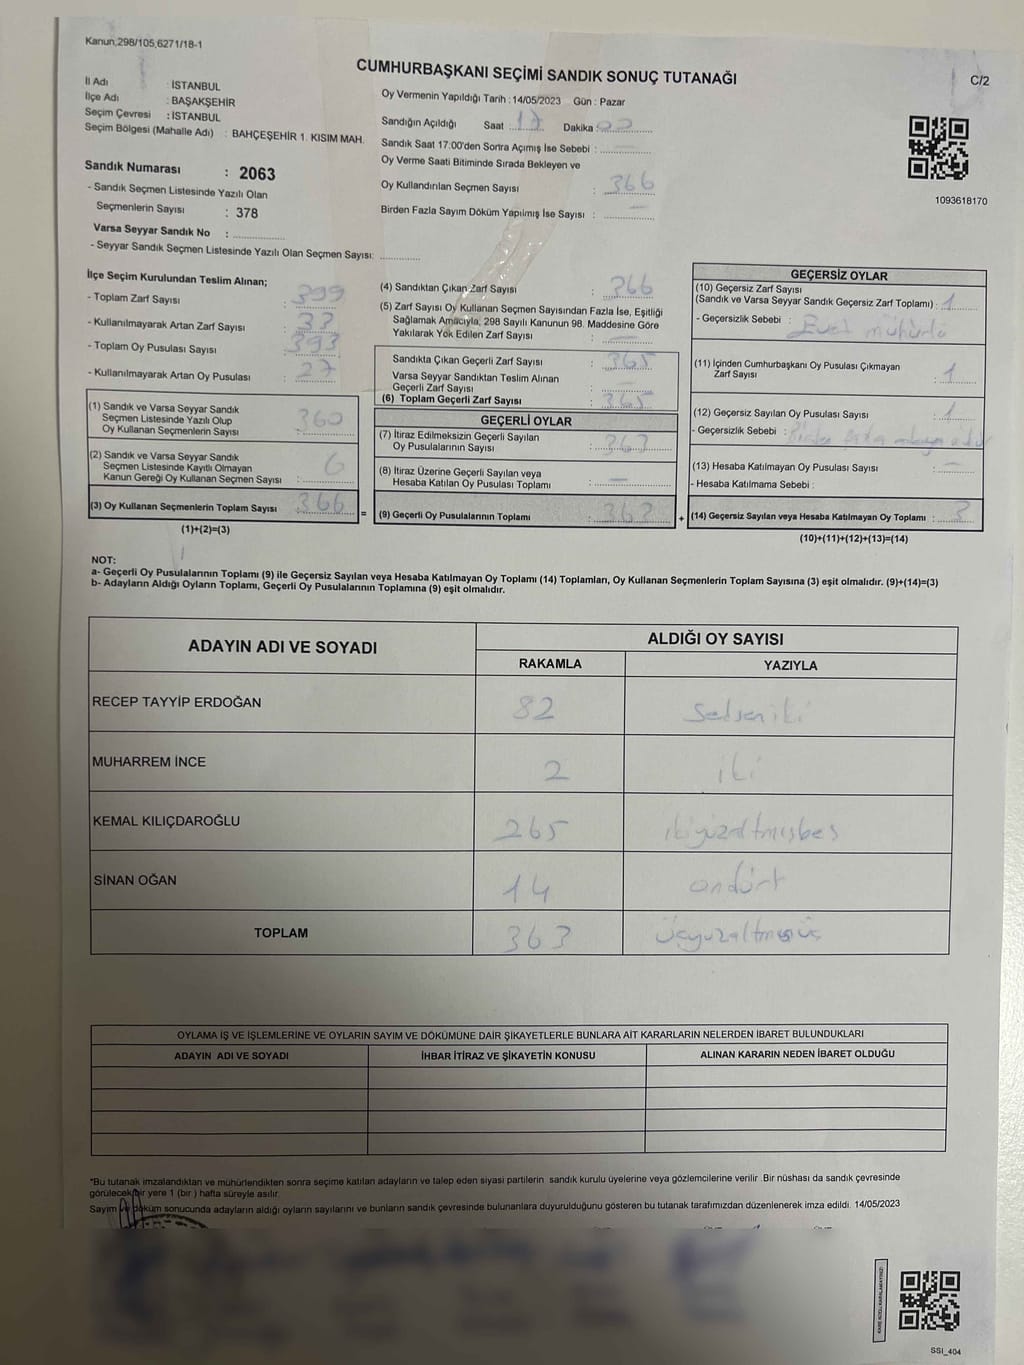 Kanun,298/105,6271/18-1
CUMHURBAŞKANI SEÇİMİ SANDIK SONUÇ TUTANAĞI
C/2
İl Adı : İSTANBUL
İlçe Adı : BAŞAKŞEHİR
Seçim Çevresi : İSTANBUL
Seçim Bölgesi (Mahalle Adı) : BAHÇEŞEHİR 1. KISIM MAH.
Sandık Numarası : 2063
- Sandık Seçmen Listesinde Yazılı Olan
Seçmenlerin Sayısı : 378
Varsa Seyyar Sandık No :
- Seyyar Sandık Seçmen Listesinde Yazılı Olan Seçmen Sayısı:
Oy Vermenin Yapıldığı Tarih : 14/05/2023 Gün : Pazar
Sandığın Açıldığı Saat 17 Dakika : 00
Sandık Saat 17:00'den Sonra Açımış İse Sebebi : —
Oy Verme Saati Bitiminde Sırada Bekleyen ve
Oy Kullandırılan Seçmen Sayısı : 366
Birden Fazla Sayım Döküm Yapılmış İse Sayısı : —
1093618170
İlçe Seçim Kurulundan Teslim Alınan;
- Toplam Zarf Sayısı : 399
- Kullanılmayarak Artan Zarf Sayısı : 33
- Toplam Oy Pusulası Sayısı : 393
- Kullanılmayarak Artan Oy Pusulası : 27
(1) Sandık ve Varsa Seyyar Sandık
Seçmen Listesinde Yazılı Olup
Oy Kullanan Seçmenlerin Sayısı : 360
(2) Sandık ve Varsa Seyyar Sandık
Seçmen Listesinde Kayıtlı Olmayan
Kanun Gereği Oy Kullanan Seçmen Sayısı : 6
(3) Oy Kullanan Seçmenlerin Toplam Sayısı 366
(1)+(2)=(3)
(4) Sandıktan Çıkan Zarf Sayısı : 366
(5) Zarf Sayısı Oy Kullanan Seçmen Sayısından Fazla İse, Eşitliği
Sağlamak Amacıyla, 298 Sayılı Kanunun 98. Maddesine Göre
Yakılarak Yok Edilen Zarf Sayısı : —
Sandıkta Çıkan Geçerli Zarf Sayısı : 365
Varsa Seyyar Sandıktan Teslim Alınan
Geçerli Zarf Sayısı : —
(6) Toplam Geçerli Zarf Sayısı : 365
GEÇERLİ OYLAR
(7) İtiraz Edilmeksizin Geçerli Sayılan
Oy Pusulalarının Sayısı : 363
(8) İtiraz Üzerine Geçerli Sayılan veya
Hesaba Katılan Oy Pusulası Toplamı : —
= (9) Geçerli Oy Pusulalarının Toplamı : 363
GEÇERSİZ OYLAR
(10) Geçersiz Zarf Sayısı
(Sandık ve Varsa Seyyar Sandık Geçersiz Zarf Toplamı) : 1
- Geçersizlik Sebebi : Evet mühürlü
(11) İçinden Cumhurbaşkanı Oy Pusulası Çıkmayan
Zarf Sayısı : 1
(12) Geçersiz Sayılan Oy Pusulası Sayısı : 1
- Geçersizlik Sebebi : Birden fazla
(13) Hesaba Katılmayan Oy Pusulası Sayısı : —
- Hesaba Katılmama Sebebi :
+ (14) Geçersiz Sayılan veya Hesaba Katılmayan Oy Toplamı : 3
(10)+(11)+(12)+(13)=(14)
NOT:
a- Geçerli Oy Pusulalarının Toplamı (9) ile Geçersiz Sayılan veya Hesaba Katılmayan Oy Toplamı (14) Toplamları, Oy Kullanan Seçmenlerin Toplam Sayısına (3) eşit olmalıdır. (9)+(14)=(3)
b- Adayların Aldığı Oyların Toplamı, Geçerli Oy Pusulalarının Toplamına (9) eşit olmalıdır.
ADAYIN ADI VE SOYADI ALDIĞI OY SAYISI
RAKAMLA YAZIYLA
RECEP TAYYİP ERDOĞAN 82 Seksen iki
MUHARREM İNCE 2 iki
KEMAL KILIÇDAROĞLU 265 ikiyüzaltmışbeş
SİNAN OĞAN 14 ondört
TOPLAM 363 Üçyüzaltmışüç
OYLAMA İŞ VE İŞLEMLERİNE VE OYLARIN SAYIM VE DÖKÜMÜNE DAİR ŞİKAYETLERLE BUNLARA AİT KARARLARIN NELERDEN İBARET BULUNDUKLARI
ADAYIN ADI VE SOYADI İHBAR İTİRAZ VE ŞİKAYETİN KONUSU ALINAN KARARIN NEDEN İBARET OLDUĞU
"Bu tutanak imzalandıktan ve mühürlendikten sonra seçime katılan adayların ve talep eden siyasi partilerin sandık kurulu üyelerine veya gözlemcilerine verilir .Bir nüshası da sandık çevresinde
görülecek bir yere 1 (bir ) hafta süreyle asılır.
Sayım ve döküm sonucunda adayların aldığı oyların sayılarını ve bunların sandık çevresinde bulunanlara duyurulduğunu gösteren bu tutanak tarafımızdan düzenlenerek imza edildi. 14/05/2023
SSI_404